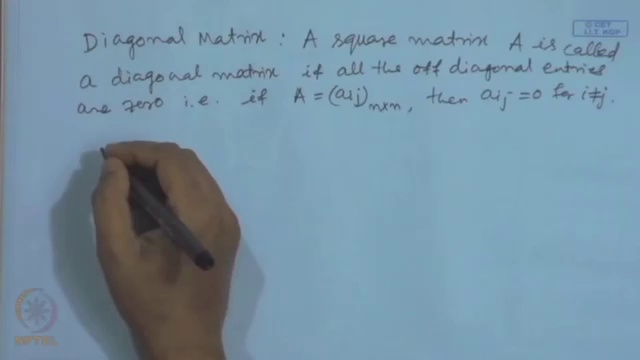 © CET
I.I.T. KGP
Diagonal Matrix : A square matrix A is called
a diagonal matrix if all the off diagonal entries
are zero i.e. if A = (aij)n×n, then aij = 0 for i≠j.
NPTEL